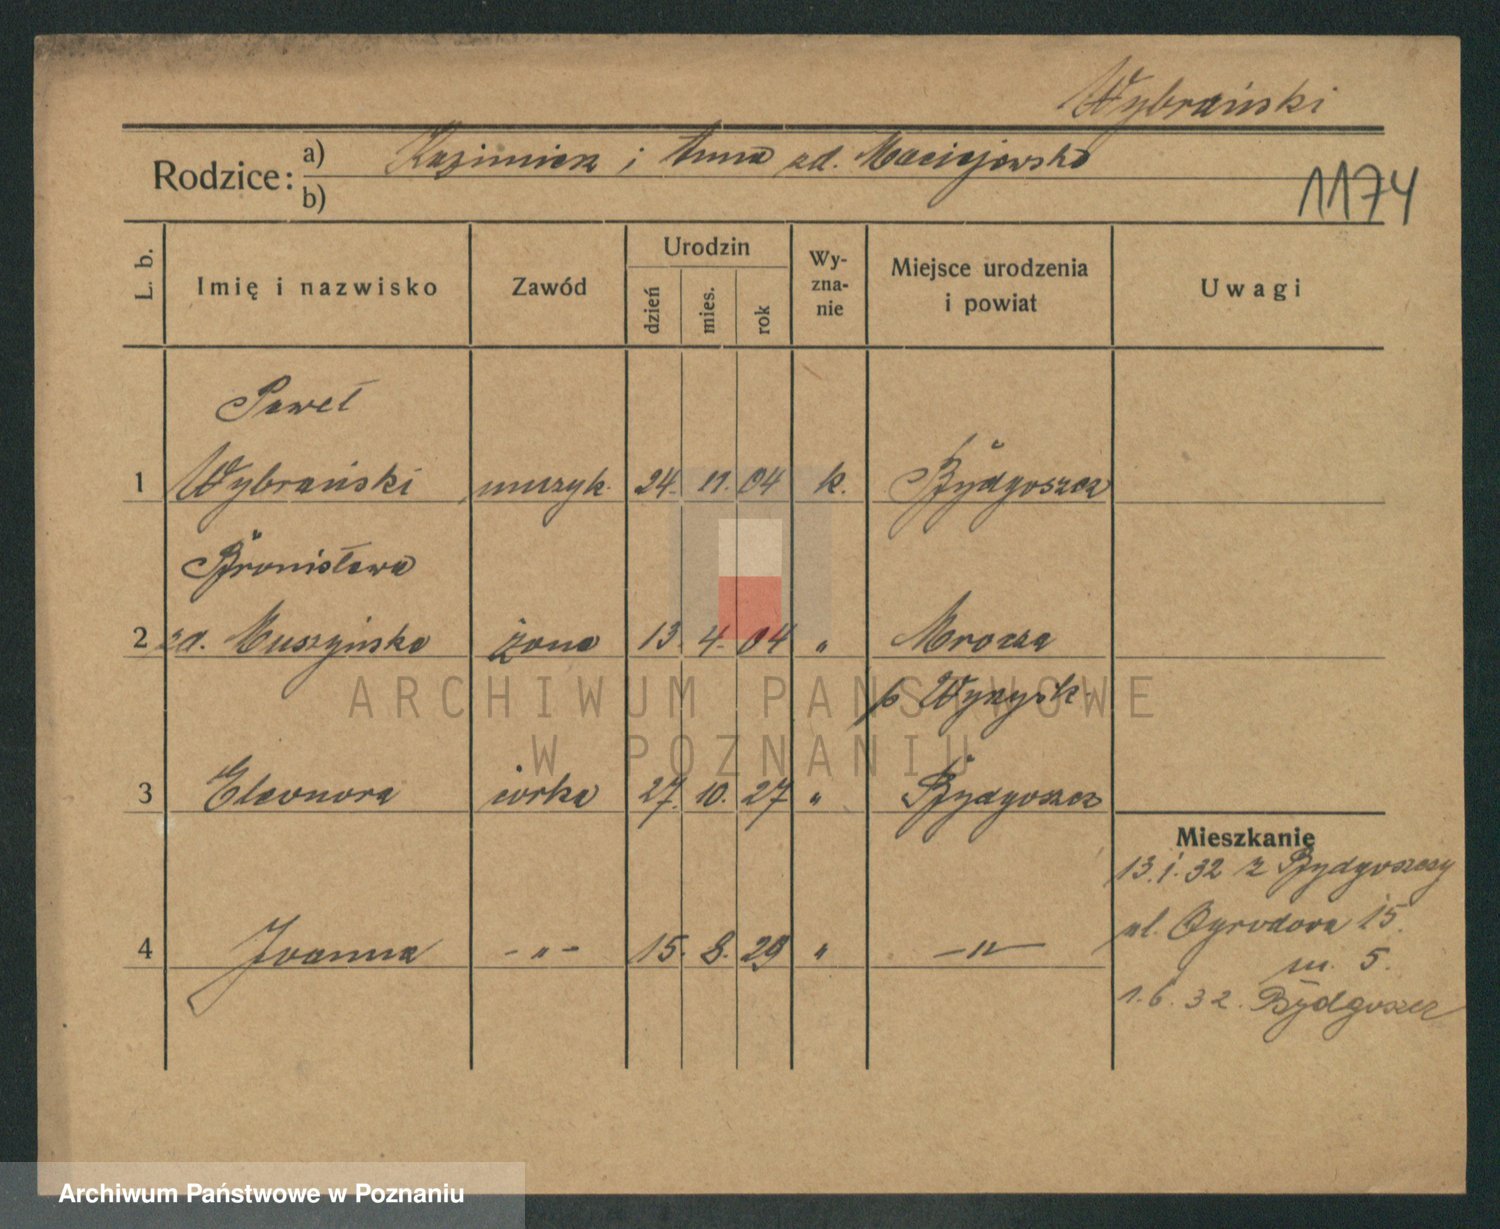 Wybrański
Rodzice: a) Kazimierz i Anna zd. Maciejewska
b)
1174
L. b.
Imię i nazwisko
Zawód
Urodzin
dzień
mies.
rok
Wy-
zna-
nie
Miejsce urodzenia
i powiat
Uwagi
Paweł
1 Wybrański muzyk. 24. 11. 04 k. Bydgoszcz
Bronisława
2 zd. Muszyńska żona 13. 4. 04 " Mrocza
p. Wyrzysk.
3 Eleonora córka 27. 10. 27 " Bydgoszcz
Mieszkanie
13.1.32 z Bydgoszczy
ul. Ogrodowa 15.
4 Joanna -"- 15. 8. 29 " -"-
m. 5.
1.6.32. Bydgoszcz
ARCHIWUM PAŃSTWOWE
W POZNANIU
Archiwum Państwowe w Poznaniu